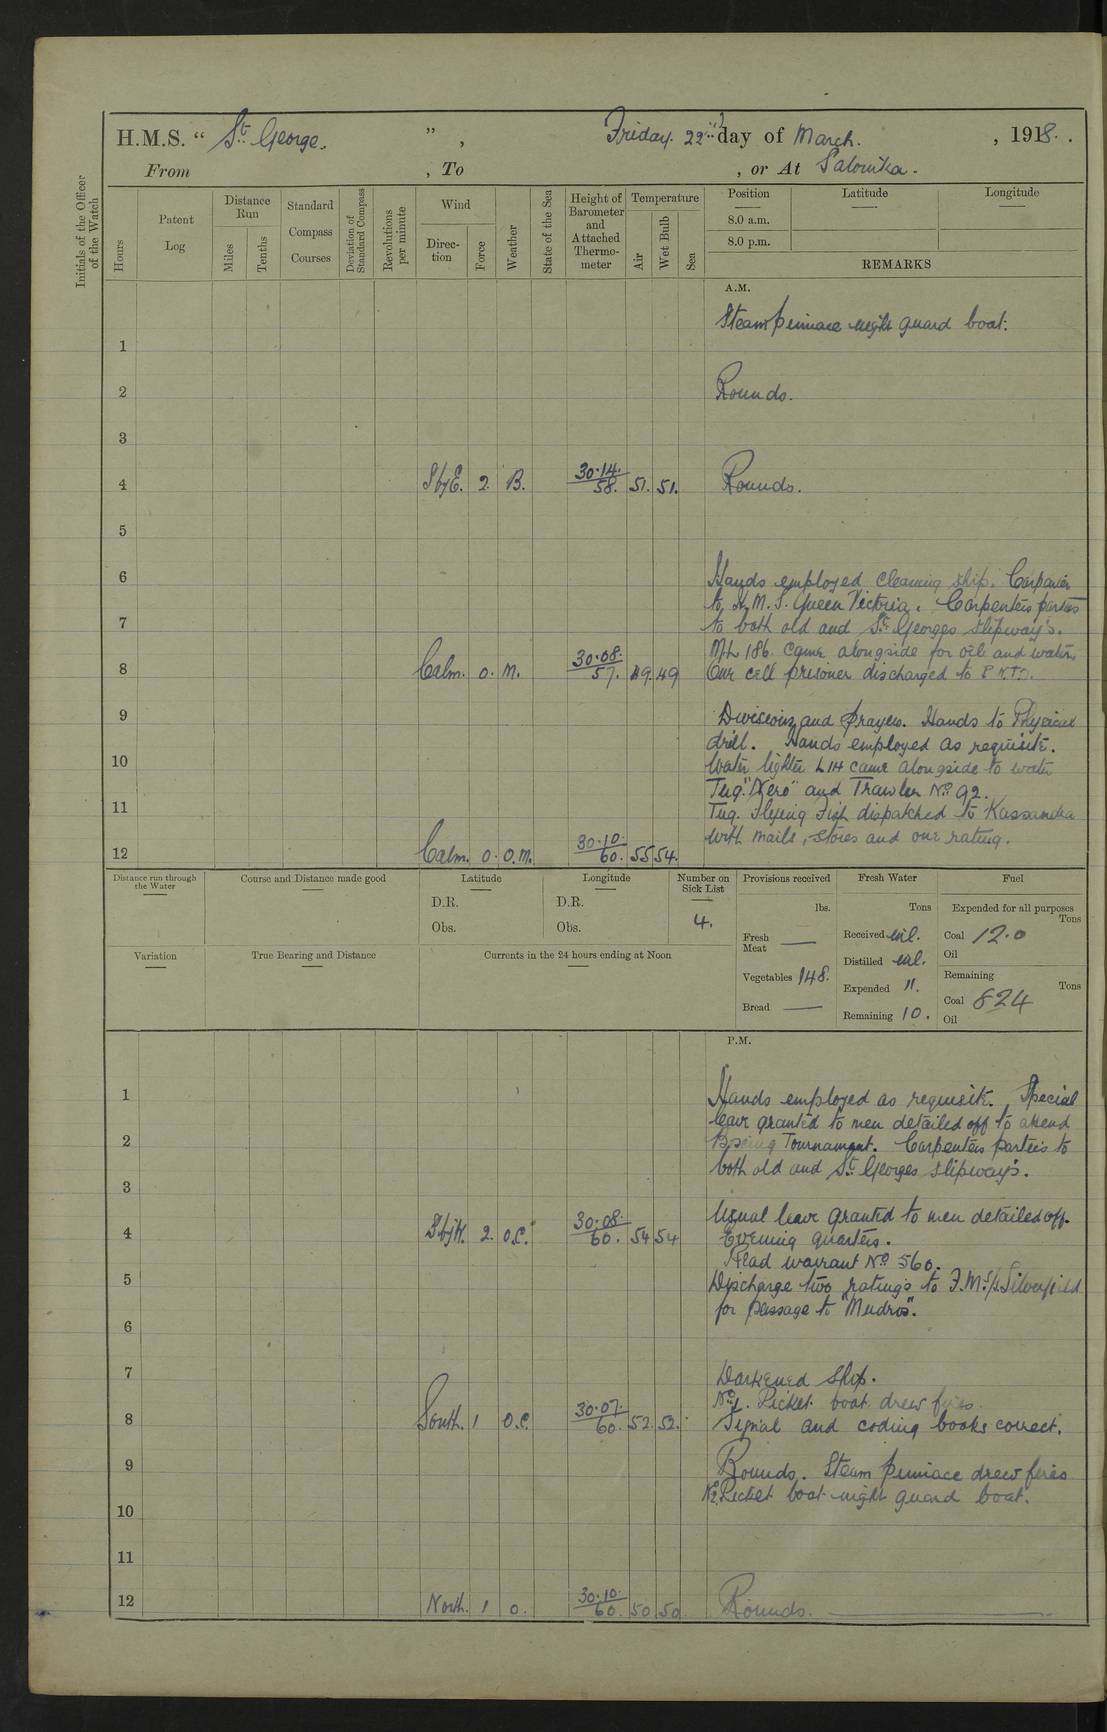 H.M.S. " St. George. ", Friday. 22nd day of March. , 1918.
From , To , or At Salonika.
Initials of the Officer of the Watch
Hours
Patent Log
Distance Run
Miles
Tenths
Standard Compass Courses
Deviation of Standard Compass
Revolutions per minute
Wind
Direction
Force
Weather
State of the Sea
Height of Barometer and Attached Thermometer
Temperature
Air
Wet Bulb
Sea
Position Latitude Longitude
8.0 a.m.
8.0 p.m.
REMARKS
A.M.
Steam pinnace night guard boat.
1
2 Rounds.
3
4 S by E. 2. B. 30.14. 58. 51. 51. Rounds.
5
6 Hands employed cleaning ship. Carpenter
to H.M.S. Queen Victoria. Carpenters parties
7 to both old and St. Georges slipway's.
ML 186. came alongside for oil and water.
8 Calm. 0. M. 30.08. 57. 49. 49 One cell prisoner discharged to P.N.T.O.
9 Divisions and prayers. Hands to Physical
drill. Hands employed as requisite.
10 Water lighter L14 came alongside to water
Tug. "Nero" and Trawler No. 92.
11 Tug. Flying Fish dispatched to Kassandra
with mails, stores and one rating.
12 Calm. 0. O.M. 30.10. 60. 55 54.
Distance run through the Water
Course and Distance made good
Latitude
D.R.
Obs.
Longitude
D.R.
Obs.
Number on Sick List
4.
Provisions received
lbs.
Fresh Meat —
Vegetables 148.
Bread —
Fresh Water
Tons
Received nil.
Distilled nil.
Expended ".
Remaining 10.
Fuel
Expended for all purposes
Tons
Coal 12.0
Oil
Remaining
Tons
Coal 824
Oil
Variation
True Bearing and Distance
Currents in the 24 hours ending at Noon
P.M.
1 Hands employed as requisite. Special
leave granted to men detailed off to attend
2 Boxing Tournament. Carpenters parties to
both old and St. Georges slipway's.
3
Usual leave granted to men detailed off.
4 S by W. 2. O.C. 30.08. 60. 54 54 Evening quarters.
Read warrant No. 560.
5 Discharge two ratings to F.M.S/S. Silverfield
for passage to "Mudros".
6
7 Darkened ship.
No. 1. Picket boat drew fires.
8 South. 1 O.C. 30.07. 60. 52. 52. Signal and coding books correct.
9 Rounds. Steam pinnace drew fires
No. 2. Picket boat night guard boat.
10
11
12 North. 1 O. 30.10. 60. 50 50 Rounds.